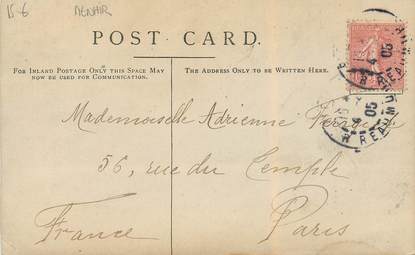 15-6 
POST CARD.
FOR INLAND POSTAGE ONLY THIS SPACE MAY NOW BE USED FOR COMMUNICATION.
THE ADDRESS ONLY TO BE WRITTEN HERE.
Mademoiselle Adrienne
56, rue du Temple
Paris
France